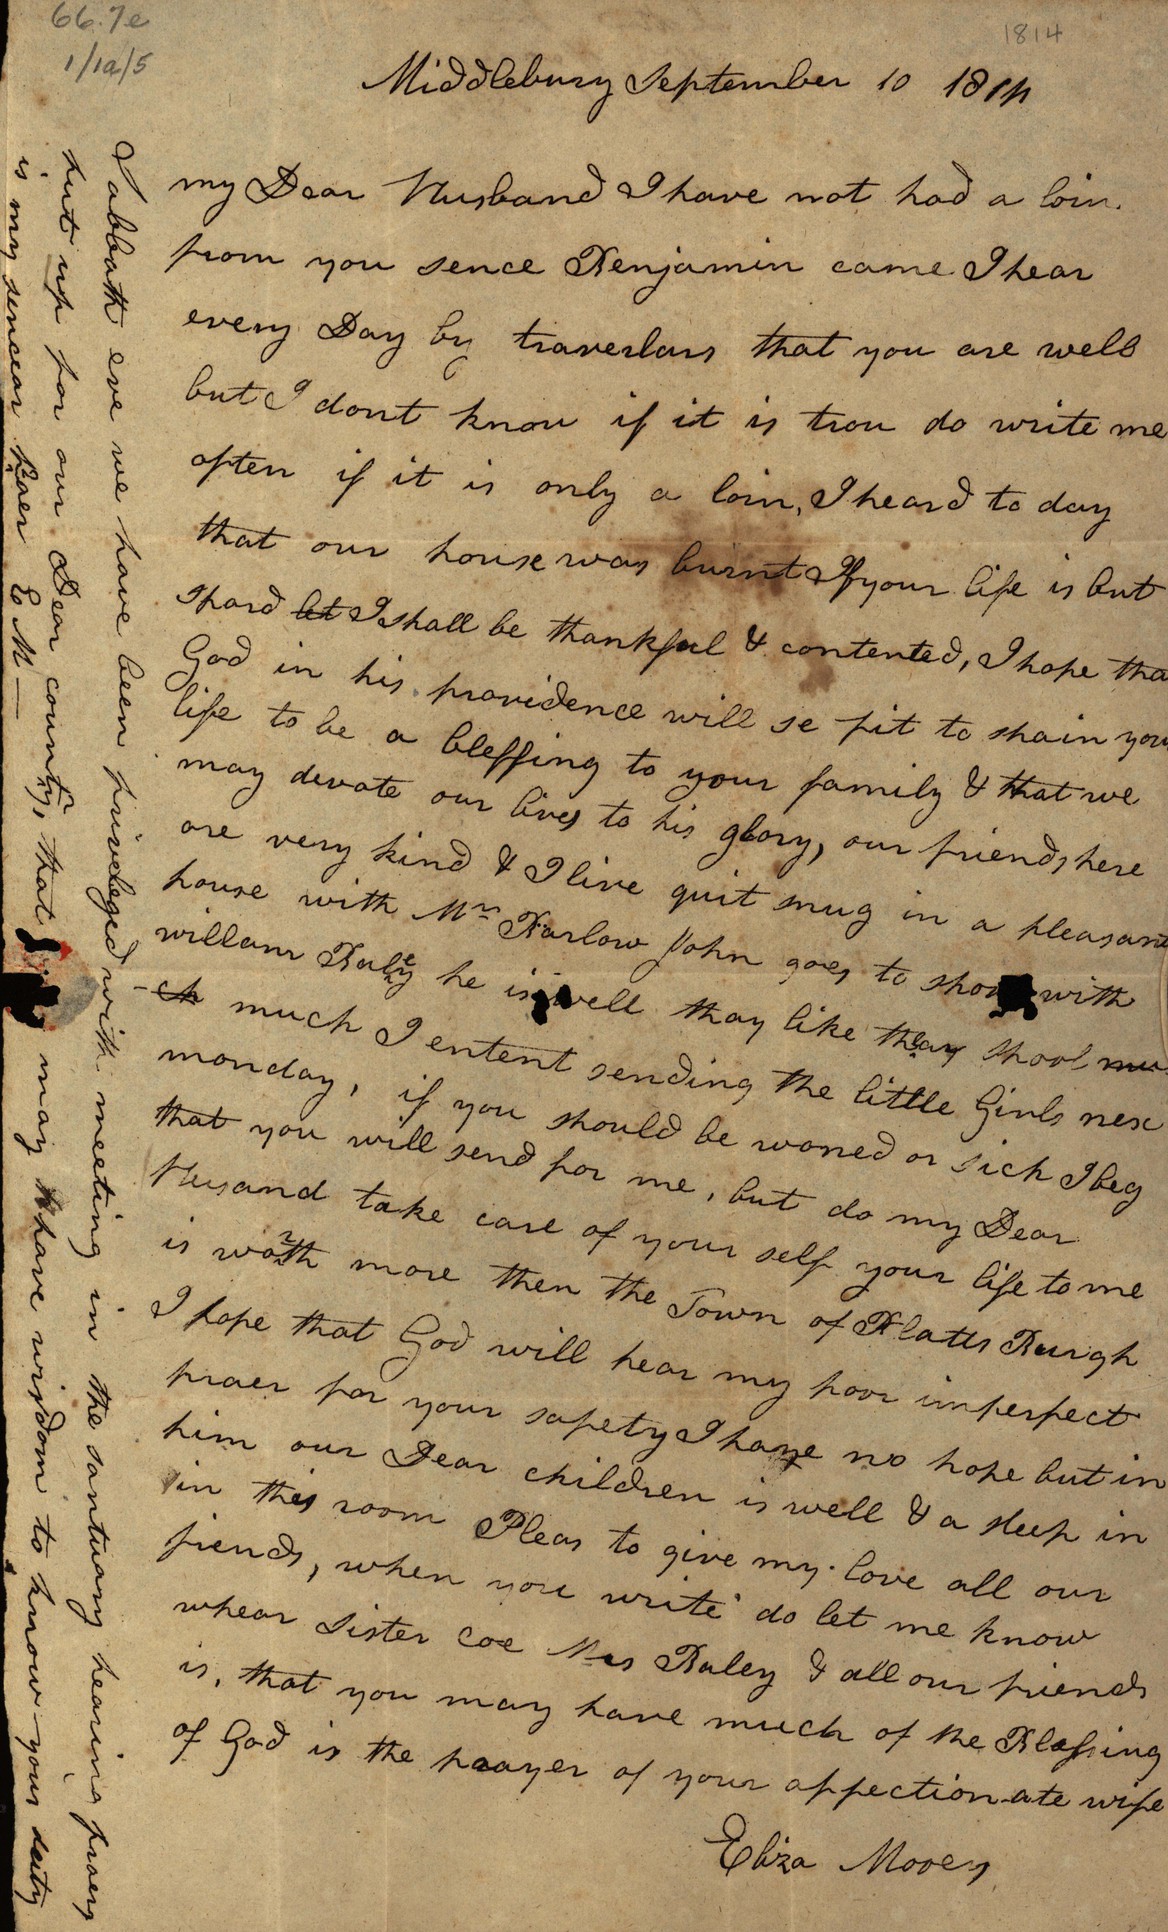 66.7e
1/1a/5
1814
Middlebury September 10 1814
my Dear Husband I have not had a loin
from you sence Benjamin came I hear
every Day by traverlars that you are well
but I dont know if it is trou do write me
often if it is only a loin, I heard to day
that our house was burnt If your life is but
spard let I shall be thankful & contented, I hope tha
God in his providence will se fit to spain your
life to be a blessing to your family & that we
may devote our lives to his glory, our friends here
are very kind & I live quit snug in a pleasant
house with Mrs Barlow John goes to shool with
willam Baley he is well thay like thay shool mu
ch much I entent sending the little Girls nex
monday, if you should be woned or sick I beg
that you will send for me, but do my Dear
Husand take care of your self your life to me
is worth more then the Town of Platts Burgh
I hope that God will hear my poor imperfect
praer for your safety I have no hope but in
him our Dear children is well & a sleep in
in this room Pleas to give my love all our
fiends, when you write do let me know
whear Sister Coe Mrs Baley & all our friends
is, that you may have much of the Blessing
of God is the prayer of your affectionate wife
Eliza Mooers
Sabbath eve we have been priveleged with meeting in the santuary hearing praers
put up for our Dear country, that may have wisdom to know your duty
is my sencear praer E M